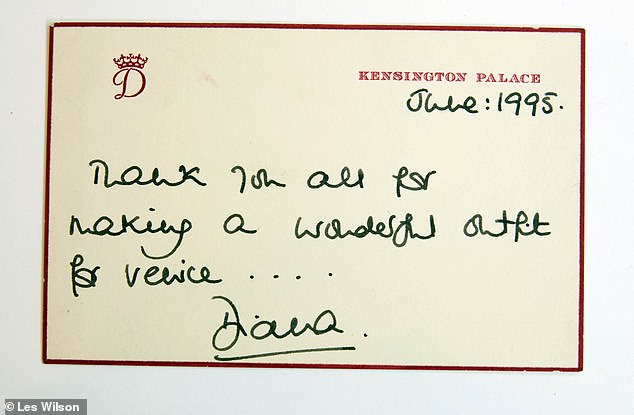 D
KENSINGTON PALACE
June: 1995.
Thank you all for
making a wonderful outfit
for Venice ....
Diana.
© Les Wilson